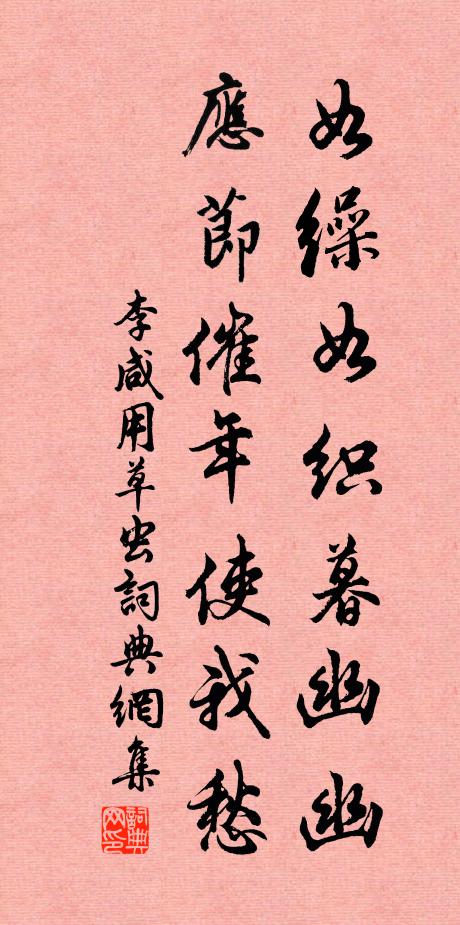 如繰如织暮幽幽
應節催年使我愁
李咸用草虫詞典網集
詞典网印